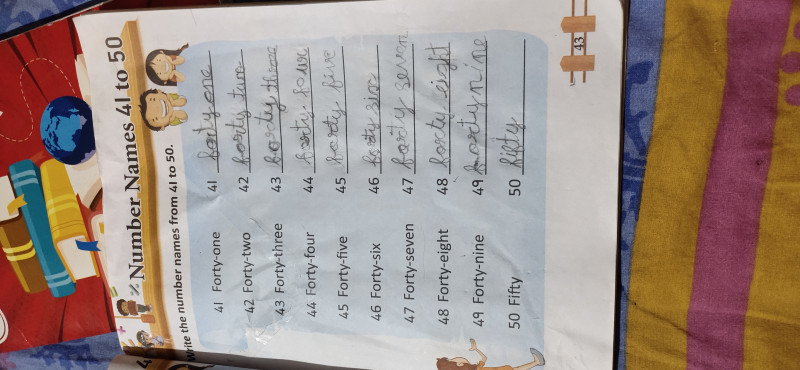 Number Names 41 to 50
Write the number names from 41 to 50.
41 Forty-one 41 forty one
42 Forty-two 42 forty two
43 Forty-three 43 forty three
44 Forty-four 44 forty four
45 Forty-five 45 forty five
46 Forty-six 46 forty six
47 Forty-seven 47 forty seven
48 Forty-eight 48 forty eight
49 Forty-nine 49 forty nine
50 Fifty 50 fifty
43